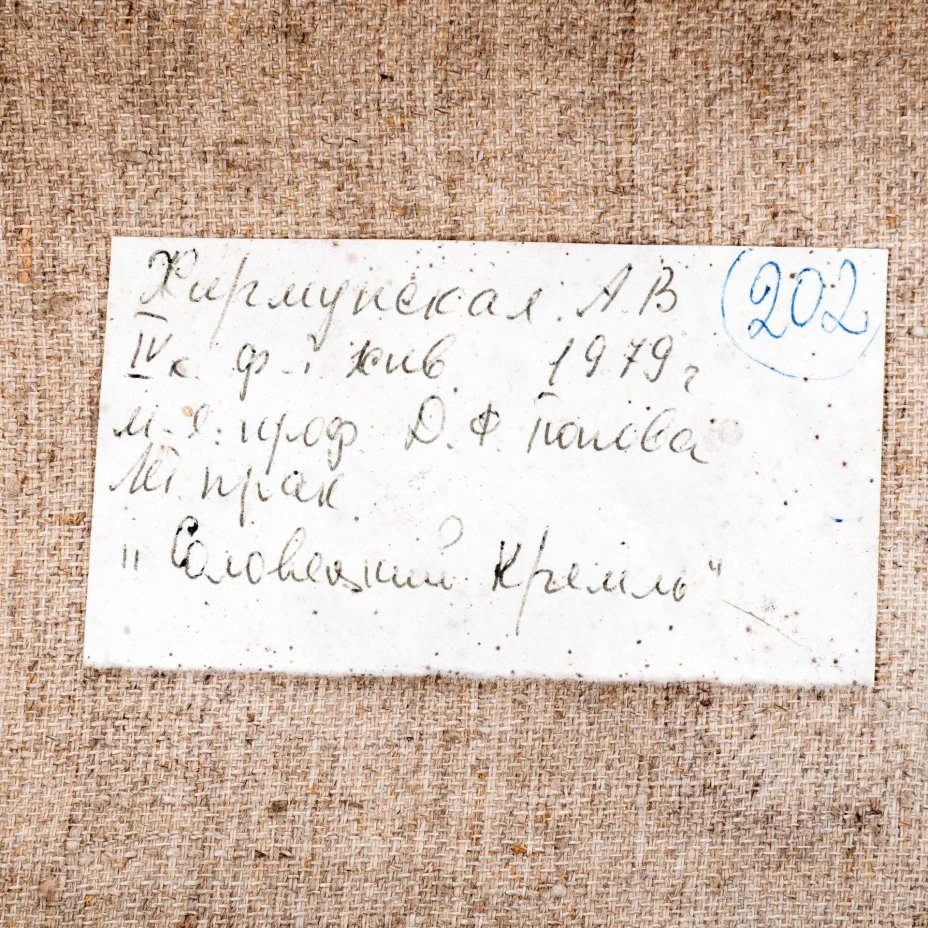 Жирмунская. А.В 202
IV к. ф-т жив. 1979 г
м-я. проф. Д.Ф. Попова
Лет. прак.
"Соловецкий Кремль"